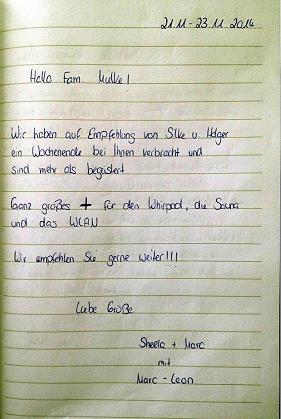 21.11 - 23.11.2014
Hello Fam. Mulke!
Wir haben auf Empfehlung von Silke u. Holger
ein Wochenende bei Ihnen verbracht und
sind mehr als begeistert
Ganz großes + für den Whirpool, die Sauna
und das WLAN
Wir empfehlen Sie gerne weiter!!!
Liebe Grüße
Sheela + Marc
mit
Marc-Leon